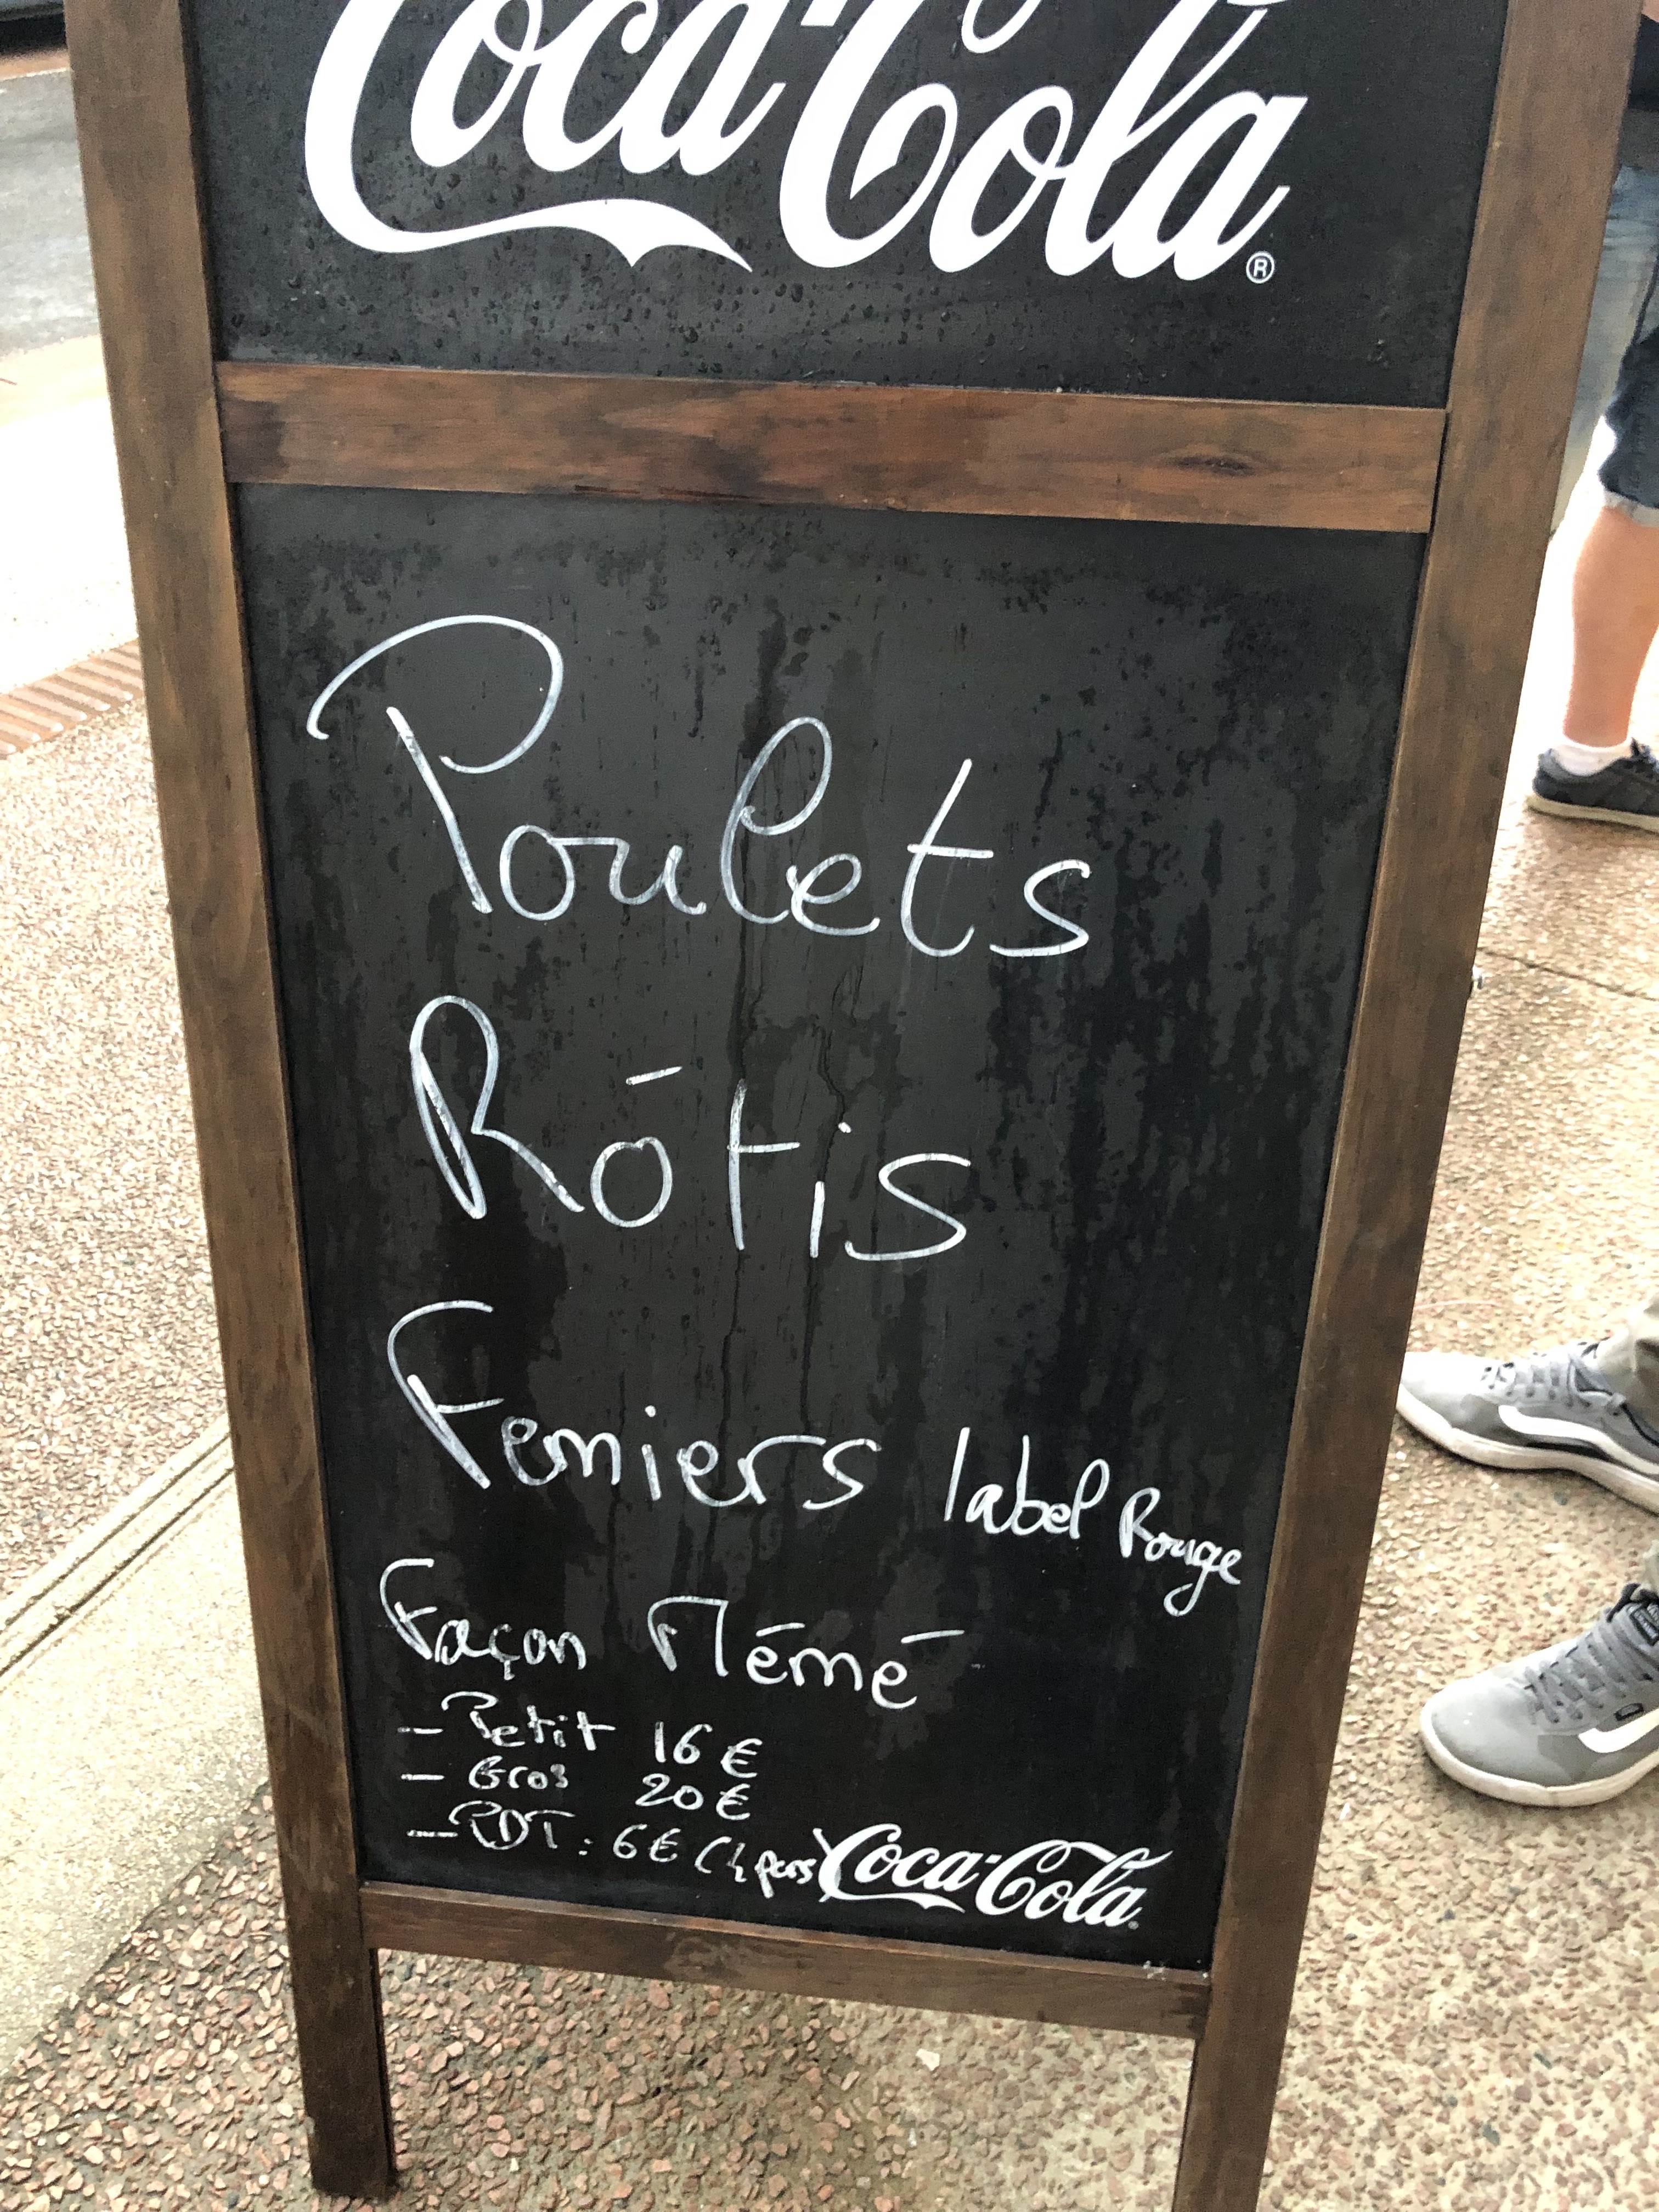 Coca-Cola®
Poulets
Rótis
Femiers label Rouge
Façon Mémé
- Petit 16 €
- Gros 20 €
- PDT : 6 € (4 pers)
Coca-Cola®